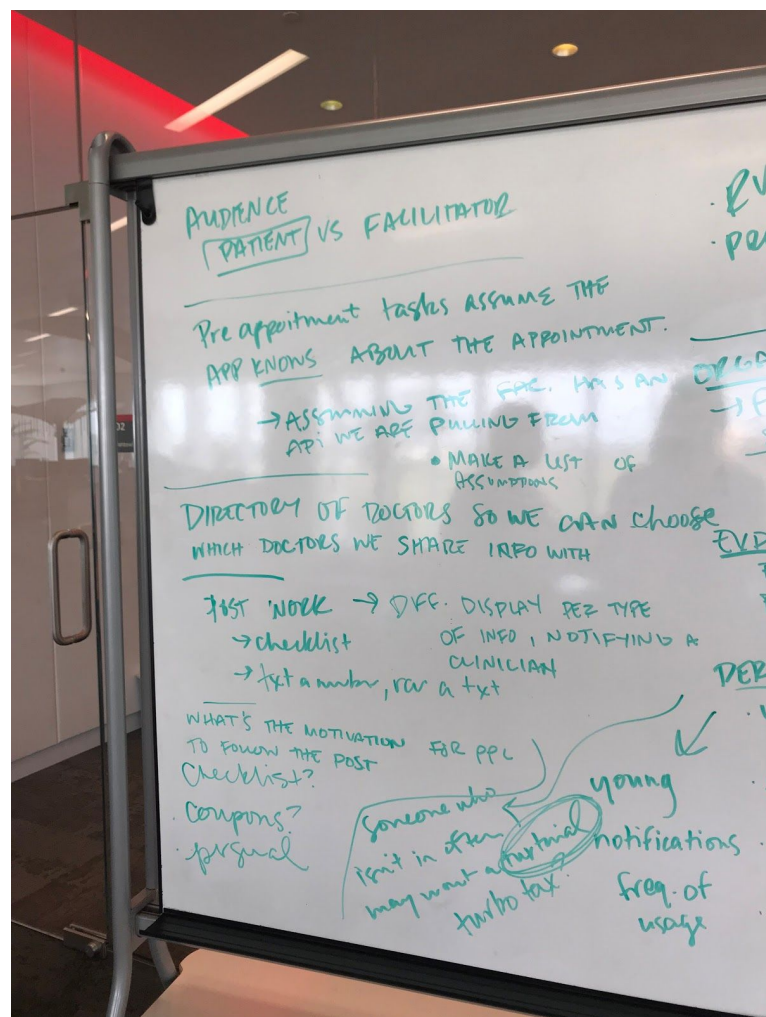 AUDIENCE
PATIENT VS FACILITATOR
Pre appoitment tasks ASSUME THE
APP KNOWS ABOUT THE APPOINTMENT.
→ ASSUMMING THE FAC. HAS AN
API WE ARE PULLING FROM
• MAKE A LIST OF
ASSUMPTIONS
DIRECTORY OF DOCTORS SO WE CAN choose
WHICH DOCTORS WE SHARE INFO WITH
POST WORK → DIFF. DISPLAY PER TYPE
OF INFO, NOTIFYING A
CLINICIAN
→ checklist
→ txt a number, rcv a txt
WHAT'S THE MOTIVATION FOR PPL
TO FOLLOW THE POST
Checklist?
· coupons?
·
someone who
isn't in often
may want a turtorial
turbo tax.
young
notifications
freq. of
usage
· RV
· PRE
ORGA
→ F
EVD
DER
02